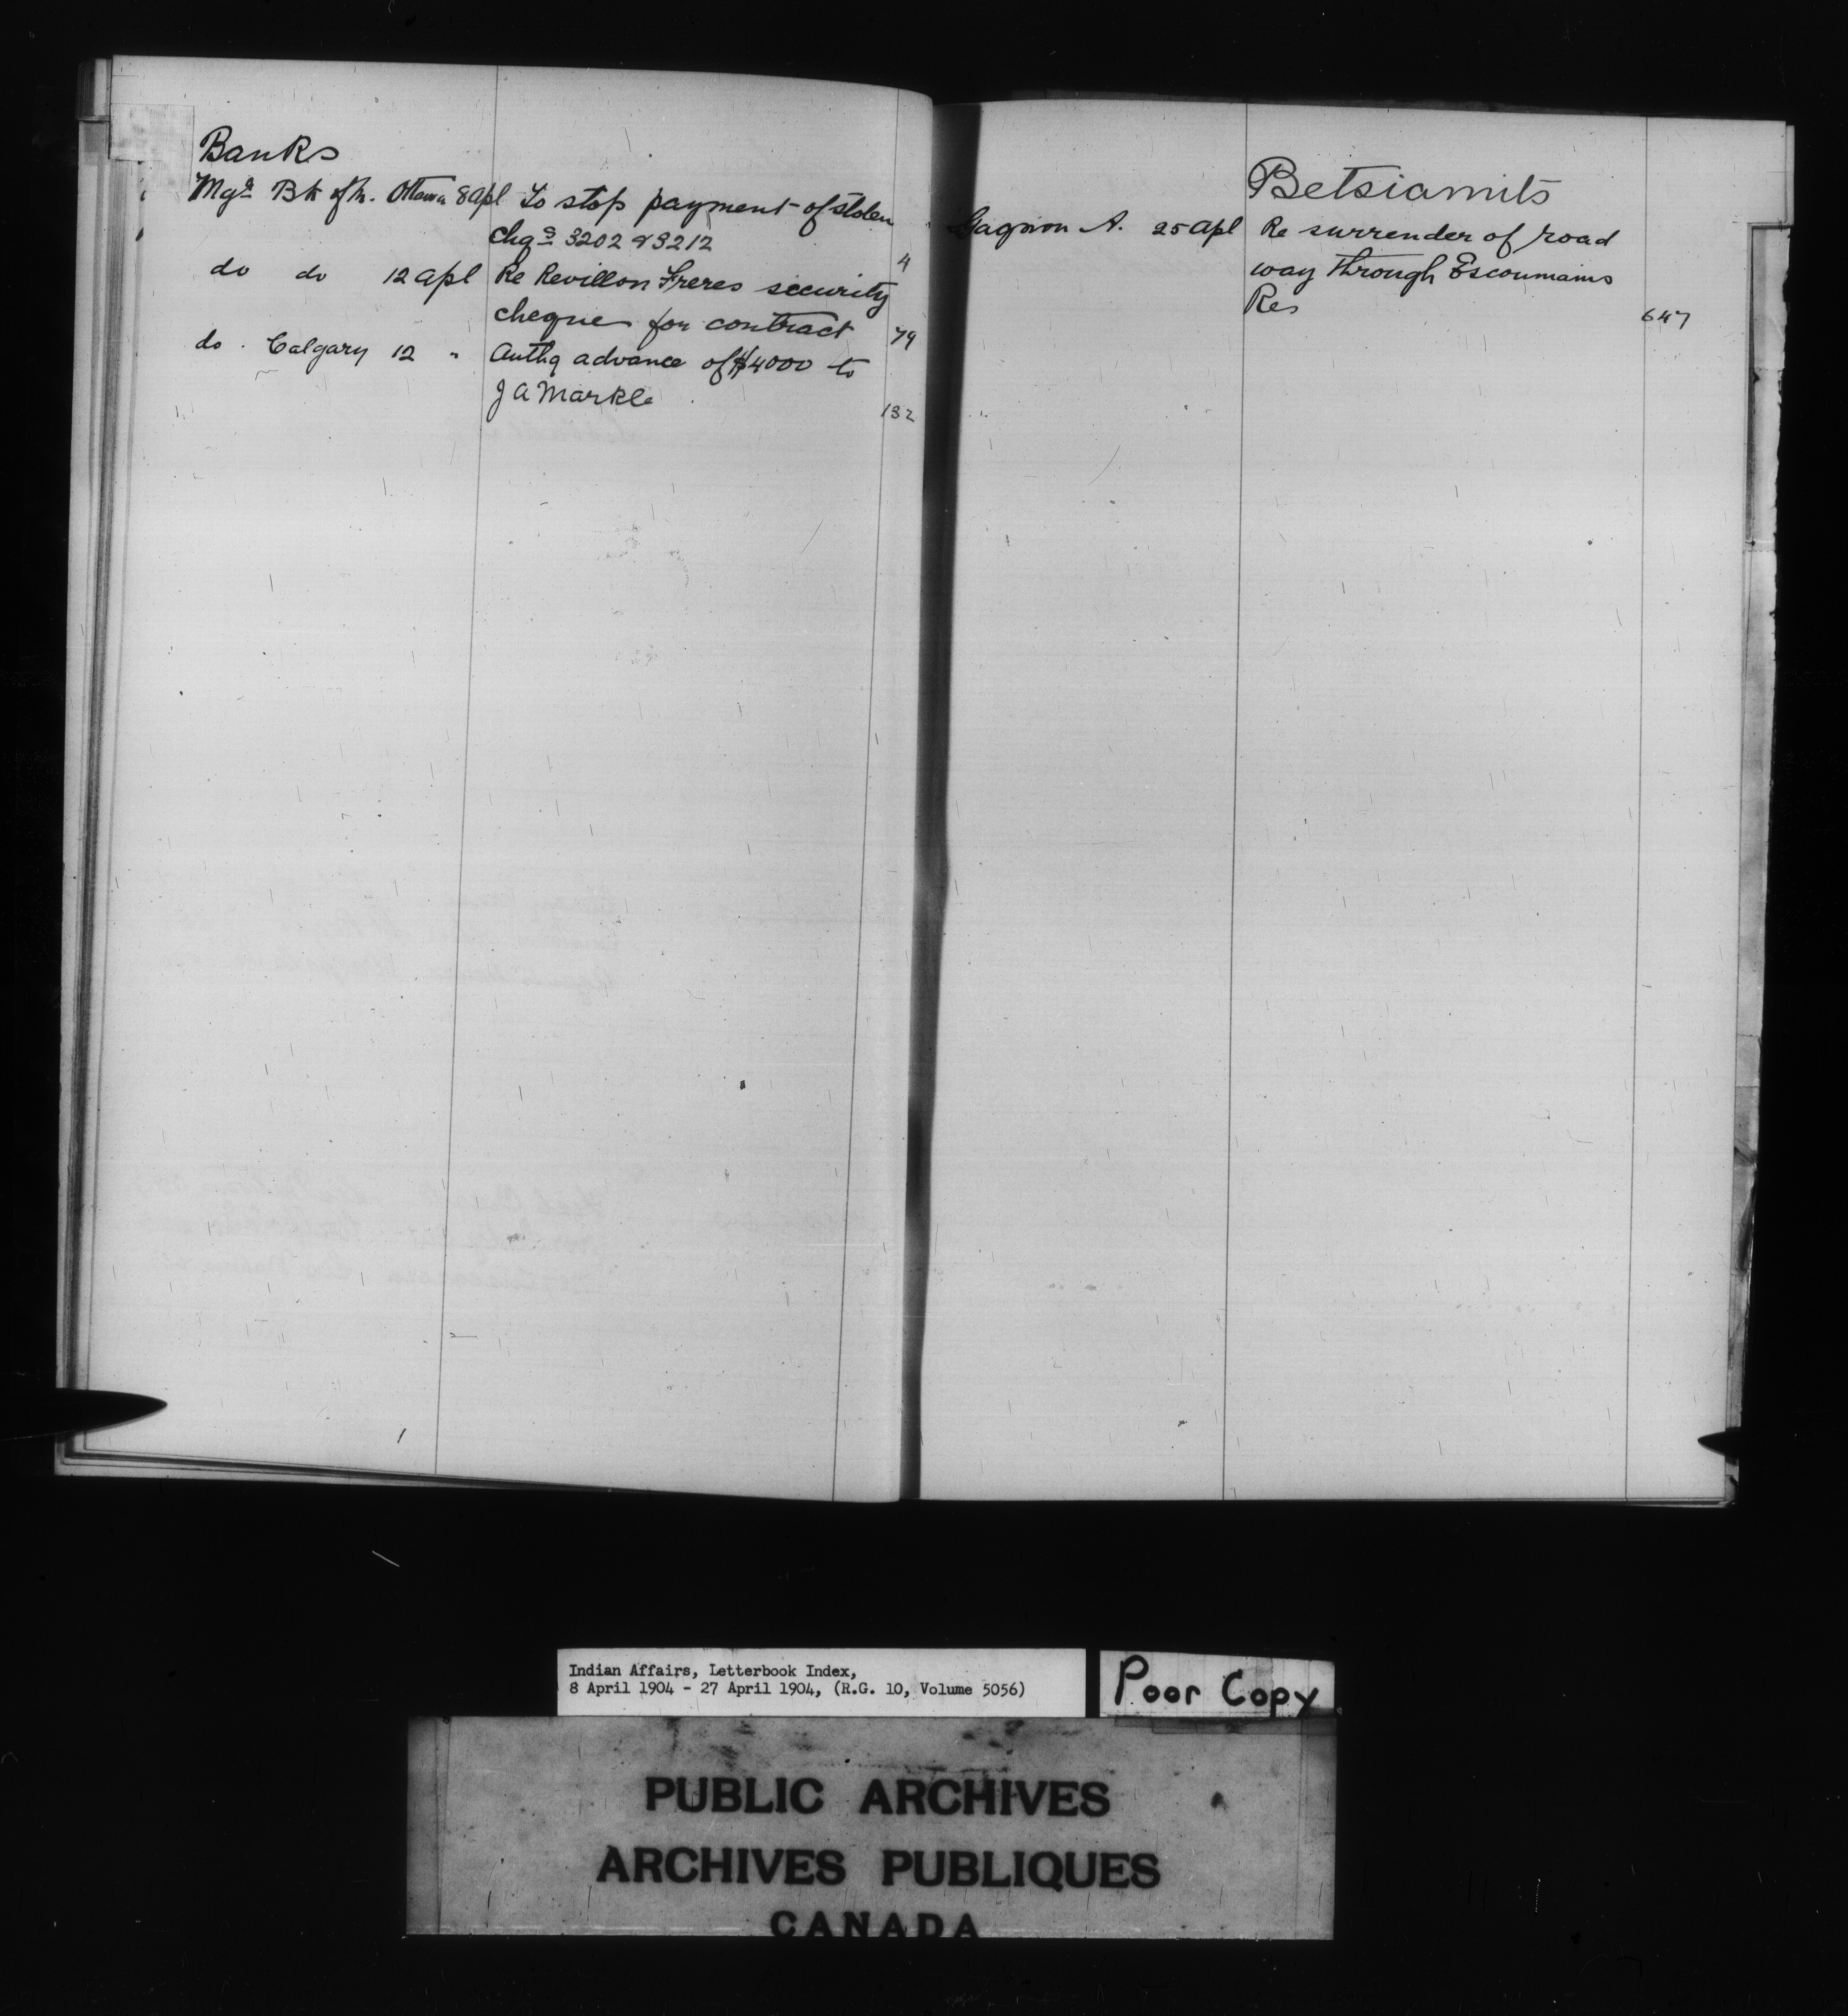 Banks
Mgr Bk of M. Ottawa 8 apl To stop payment of stolen
chqs 3202 & 3212 4
do do 12 apl Re Revillon Freres security
cheque for contract 79
do. Calgary 12 " Authg advance of $4000 to
J A Markle 132
Betsiamits
Gagnon A. 25 apl Re surrender of road
way through Escoumains
Res 647
Indian Affairs, Letterbook Index,
8 April 1904 - 27 April 1904, (R.G. 10, Volume 5056)
Poor Copy
PUBLIC ARCHIVES
ARCHIVES PUBLIQUES
CANADA